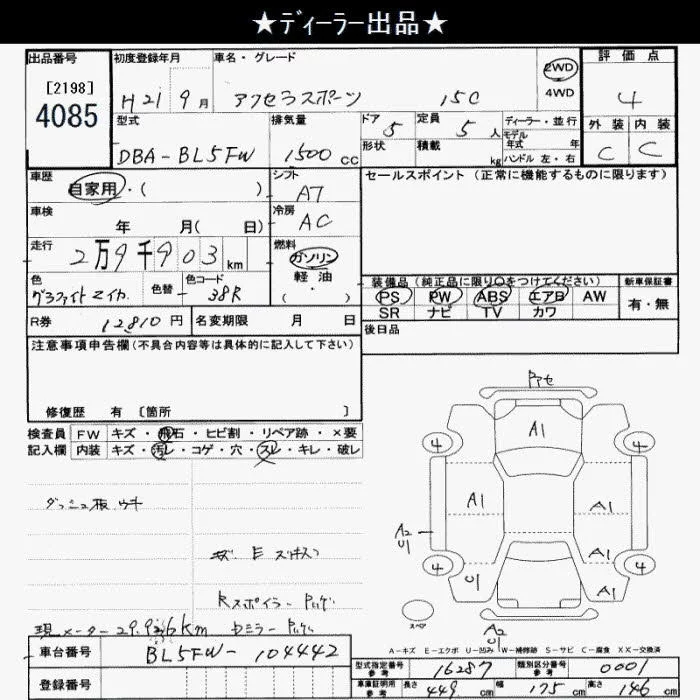 ★ディーラー出品★
出品番号 初度登録年月 車名・グレード 評価点
[2198]
4085
H21 9月 アクセラスポーツ 15C
2WD
4WD
4
型式 排気量 ドア 定員 ディーラー・並行 外装 内装
DBA-BL5FW 1500 cc 5 5人 モデル年式 年
形状 積載 kg ハンドル 左・右 C C
車歴 シフト セールスポイント (正常に機能するものに限ります)
自家用・( ) AT
車検 冷房
年 月( 日) AC
走行 燃料
2万9千903km ガソリン
軽・油
( ・ )
色 色替 色コード
グラファイトマイカ - 38R
装備品 (純正品に限り○をつけてください) 新車保証書
PS PW ABS エアB AW 有・無
SR ナビ TV カワ
R券 12810円 名変期限 月 日
後日品
注意事項申告欄(不具合内容等は具体的に記入して下さい)
修復歴 有 [箇所 ]
検査員 FW キズ・飛石・ヒビ割・リペア跡・×要
記入欄 内装 キズ・汚レ・コゲ・穴・スレ・キレ・破レ
ダッシュ板 ウキ
Rスポイラー
現メーター
車台番号 BL5FW-104442
登録番号
A1
4 4
A1 A1
A2
U1
A1
4 4
U1 A1
スペア
A2
U1
A-キズ E-エクボ U-凹み W-補修跡 S-サビ C-腐食 XX-交換済
型式指定番号 参考 16287 類別区分番号 参考 0001
車庫証明用 参考 長さ 449 cm 幅 175 cm 高さ 146 cm